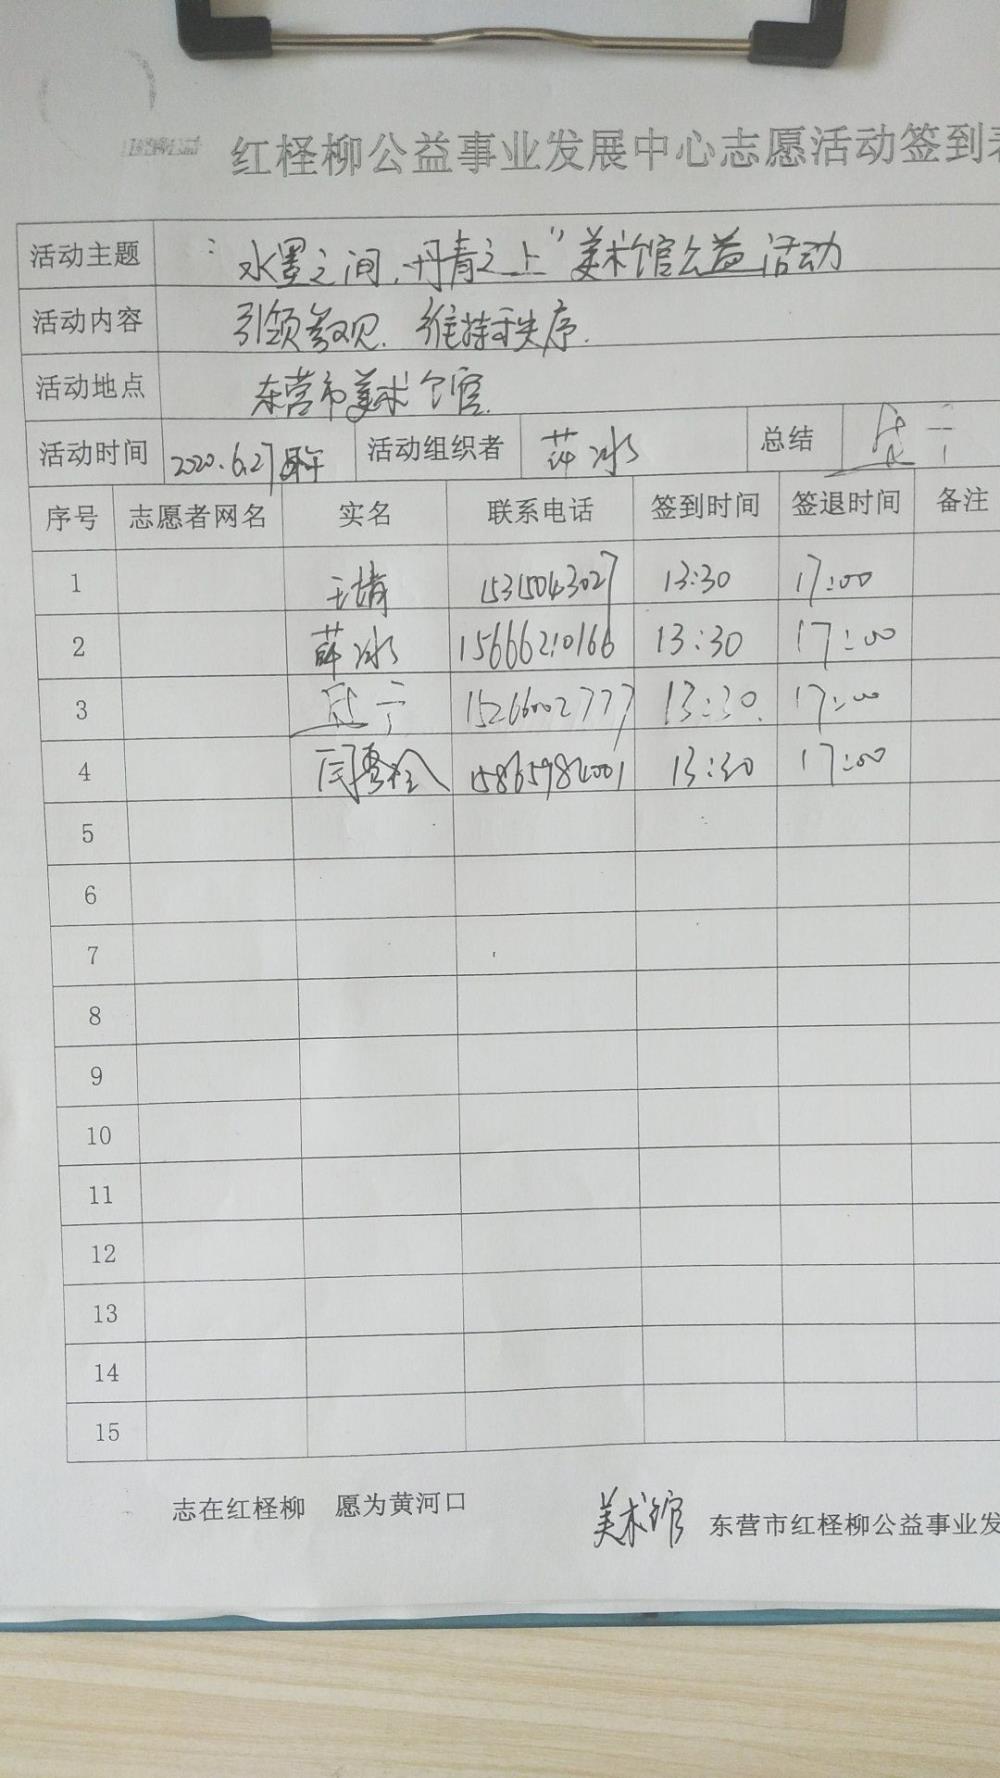 红柽柳公益事业发展中心志愿活动签到表
活动主题 "水墨之间,丹青之上"美术馆公益活动
活动内容 引领参观、维持秩序.
活动地点 东营市美术馆
活动时间 2020.6.27 活动组织者 薛冰 总结
序号 志愿者网名 实名 联系电话 签到时间 签退时间 备注
1 王婧 15315043027 13:30 17:00
2 薛冰 15666210166 13:30 17:00
3 15266002777 13:30 17:00
4 13:30 17:00
5
6
7
8
9
10
11
12
13
14
15
志在红柽柳 愿为黄河口 美术馆 东营市红柽柳公益事业发